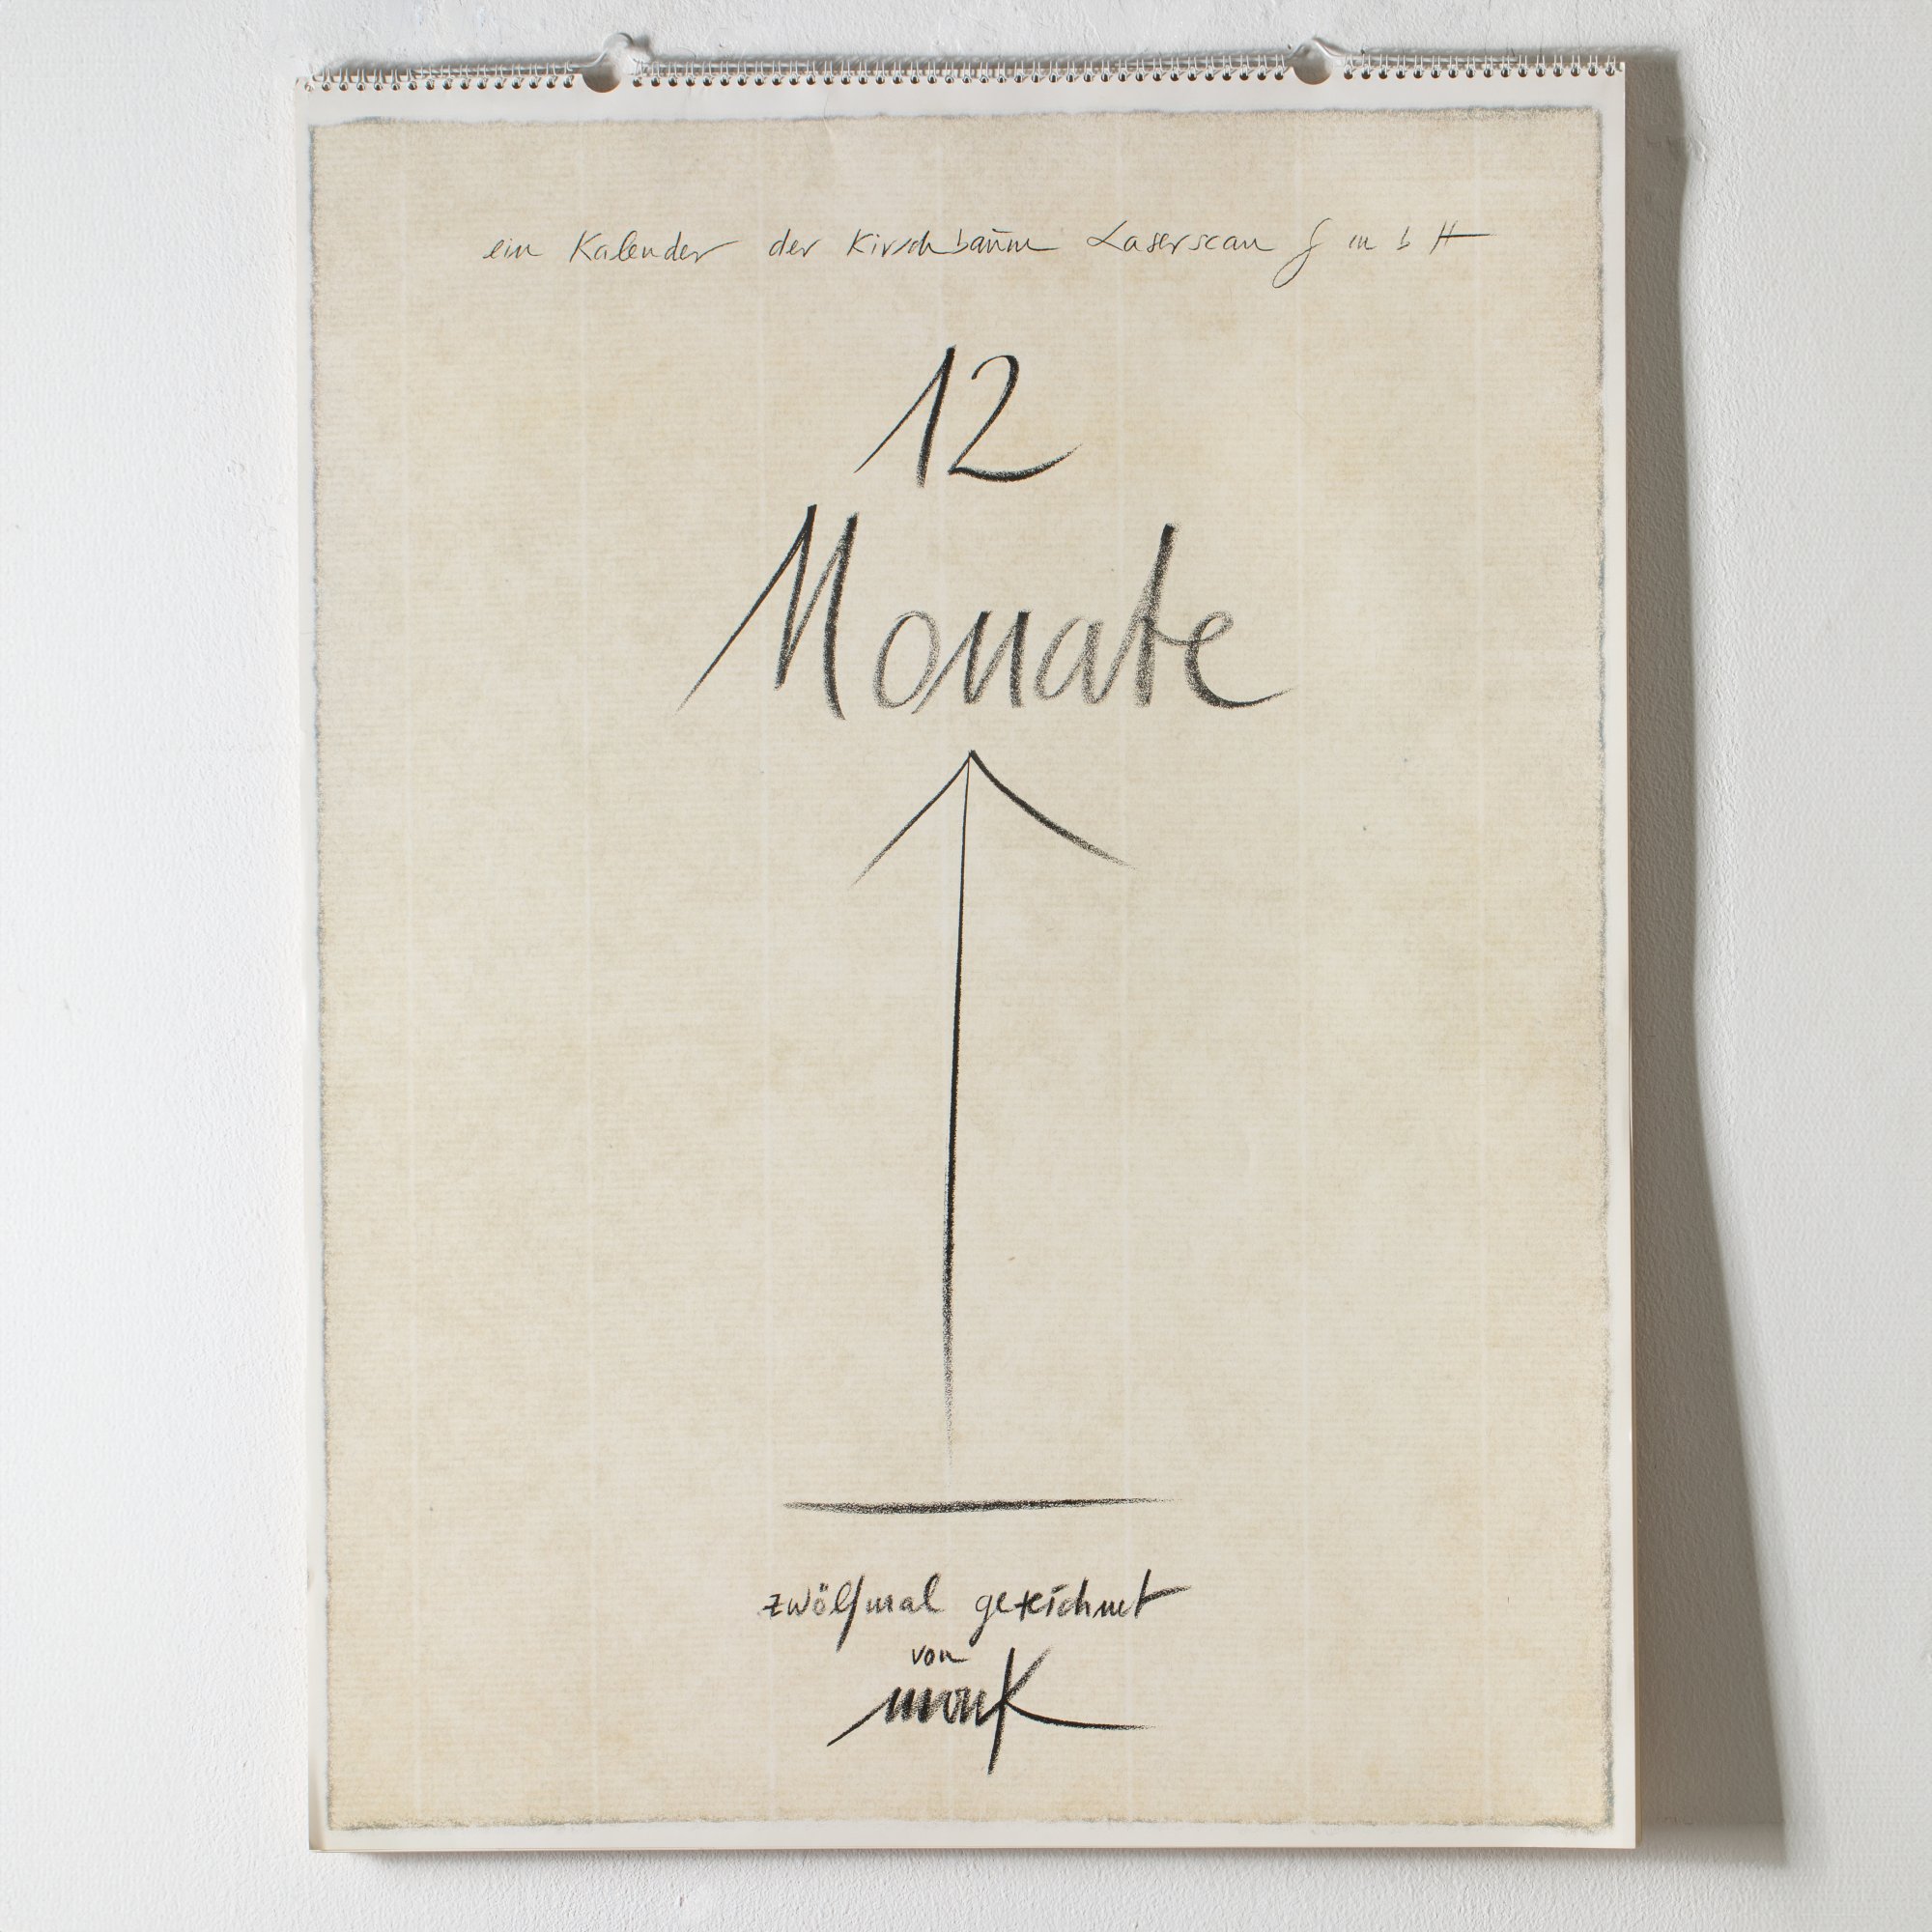 ein Kalender der Kirschbaum Laserscan GmbH
12
Monate
zwölfmal gezeichnet
von
monk